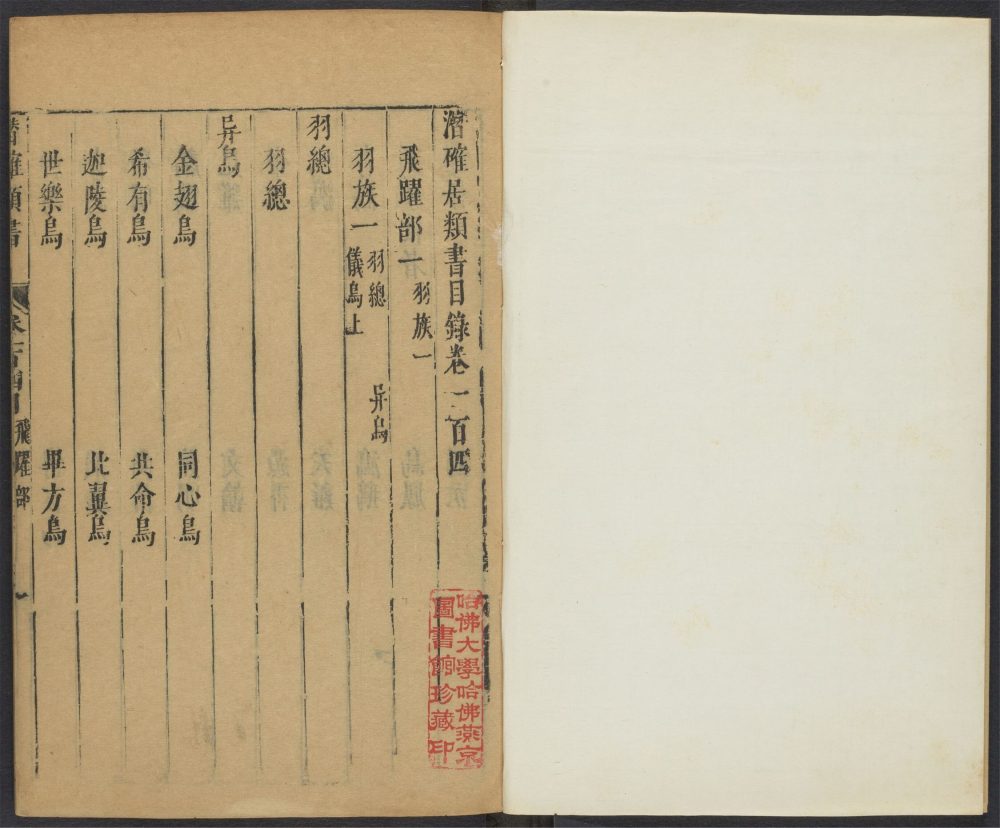 潛確居類書目錄卷一百四
飛躍部一 羽族一
羽族一 羽總 异鳥
儀鳥上
羽總
羽總
异鳥
金翅鳥 同心鳥
希有鳥 共命鳥
迦陵鳥 比翼鳥
世樂鳥 畢方鳥
潛確類書 卷一百四目 飛躍部 一
哈佛大學哈佛燕京
圖書館珍藏印